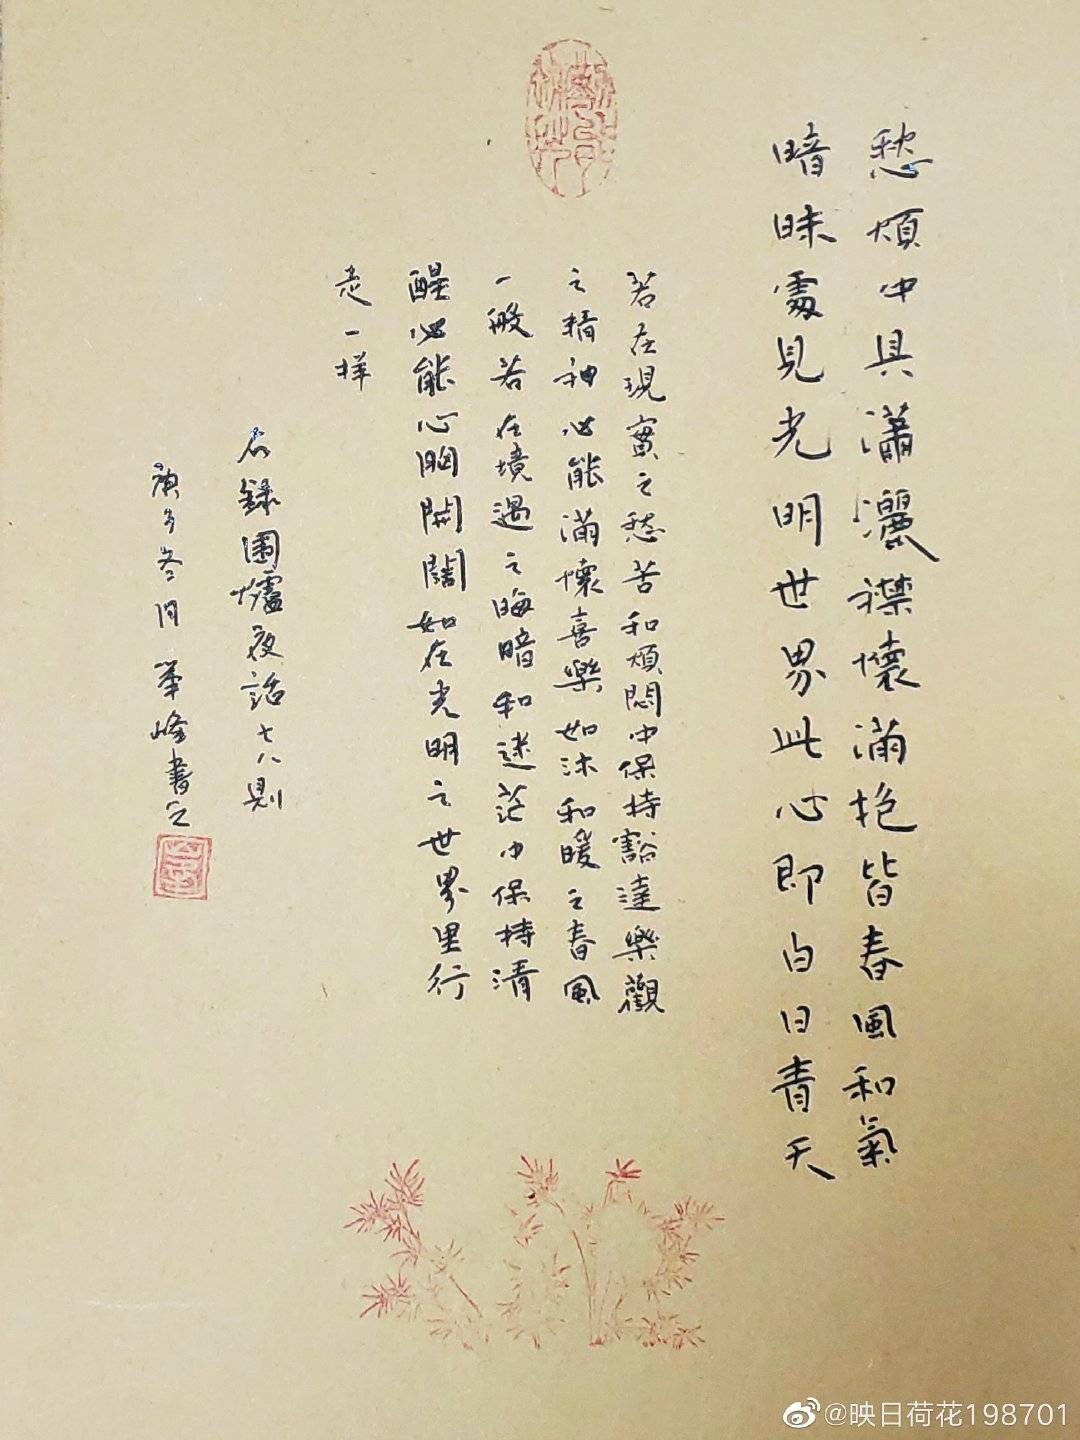 愁煩中具瀟灑襟懷滿抱皆春風和氣
暗昧處見光明世界此心即白日青天
若在現實之愁苦和煩悶中保持豁達樂觀
之精神必能滿懷喜樂如沐和暖之春風
一般若在境遇之晦暗和迷茫中保持清
醒必能心胸開闊如在光明之世界里行
走一样
右錄圍爐夜話七八則
庚子冬月華峰書之
@映日荷花198701